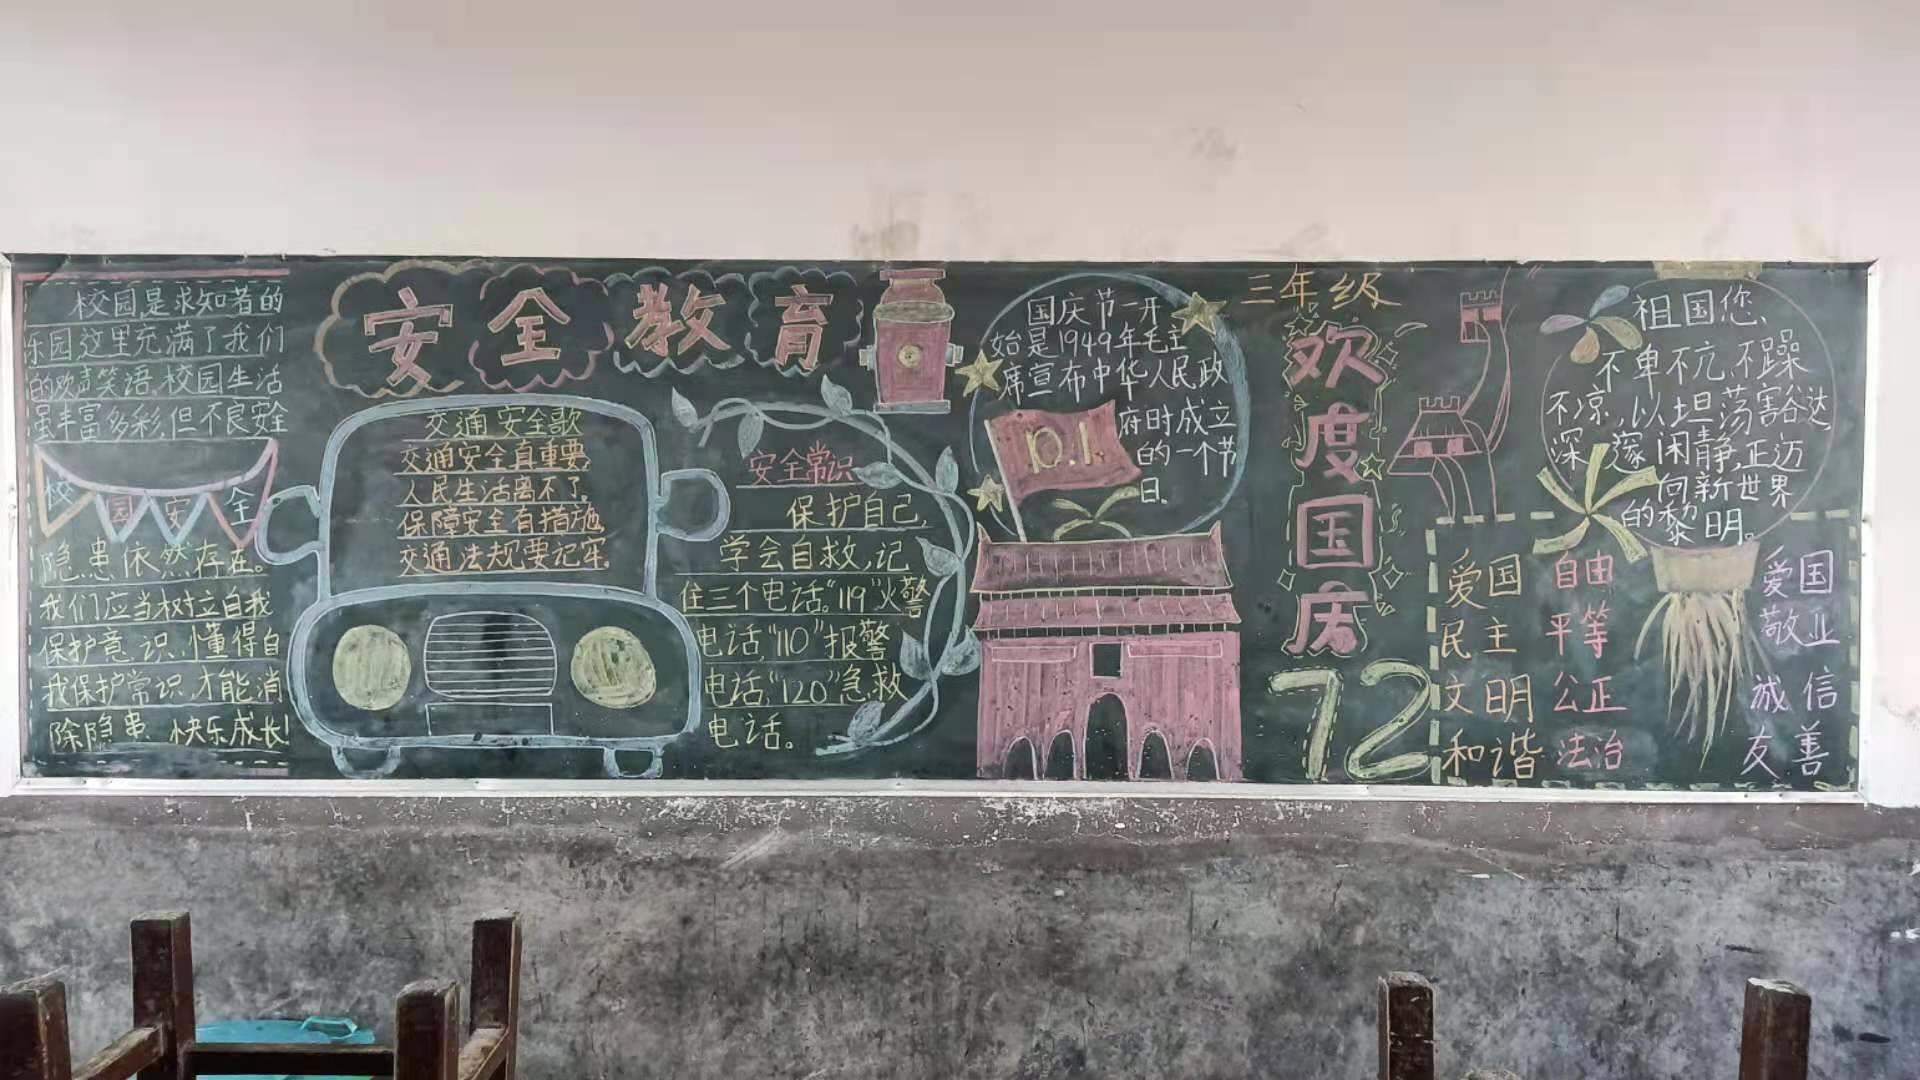 校园是求知者的
乐园这里充满了我们
的欢声笑语,校园生活
虽丰富多彩,但不良安全
校园安全
隐患依然存在。
我们应当树立自我
保护意识,懂得自
我保护常识,才能消
除隐患,快乐成长!
安全教育
交通安全歌
交通安全真重要,
人民生活离不了,
保障安全有措施,
交通法规要记牢.
安全常识
保护自己,
学会自救,记
住三个电话。"119"火警
电话,"110"报警
电话,"120"急救
电话。
国庆节一开
始是1949年毛主
席宣布中华人民政
府时成立
的一个节
日.
10.1.
三年级
欢度国庆
72
祖国您、
不卑不亢,不躁
不凉,以坦荡豁达,
深邃闲静,正迈
向新世界
的黎明。
爱国
民主
文明
和谐
自由
平等
公正
法治
爱国
敬业
诚信
友善